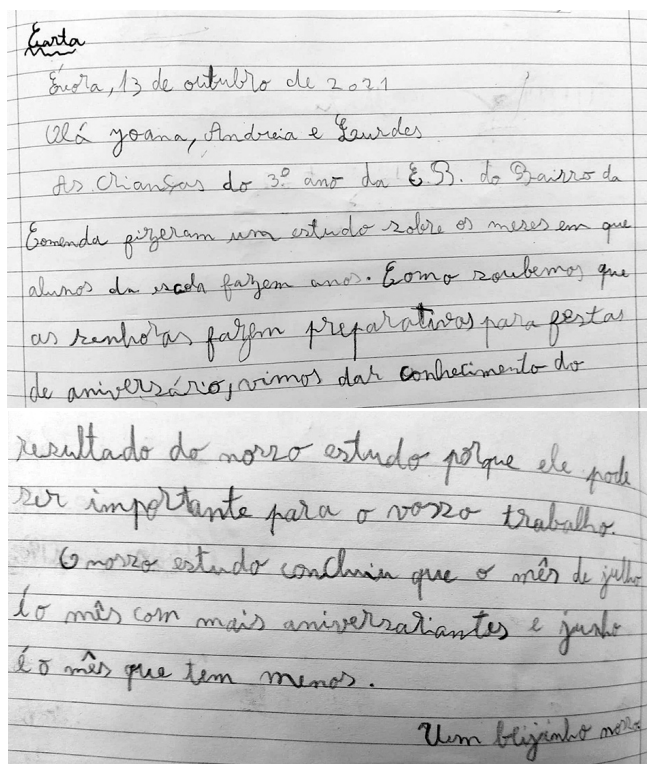 Carta
Évora, 13 de outubro de 2021
Olá Yoana, Andreia e Lourdes
As crianças do 3º ano da E.B. do Bairro da
Comenda fizeram um estudo sobre os meses em que
alunos da escola fazem anos. Como soubemos que
as senhoras fazem preparativos para festas
de aniversário, vimos dar conhecimento do
resultado do nosso estudo porque ele pode
ser importante para o vosso trabalho.
O nosso estudo concluiu que o mês de julho
é o mês com mais aniversariantes e junho
é o mês que tem menos.
Um beijinho nosso